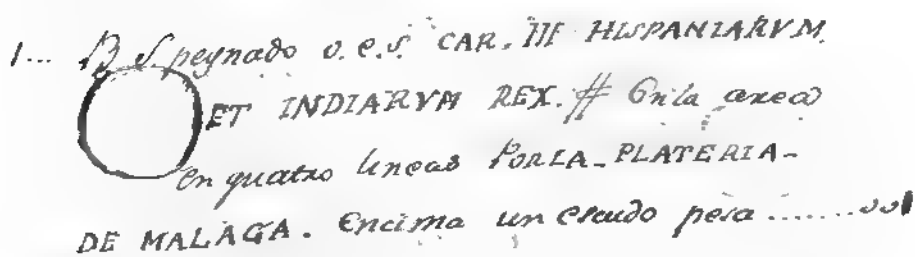 1... B S. peynado v.e.s. CAR. III HISPANIARVM.
ET INDIARVM REX. # En la area
en quatro lineas PORLA_PLATERIA_
DE MALAGA. Encima un escudo pesa .......